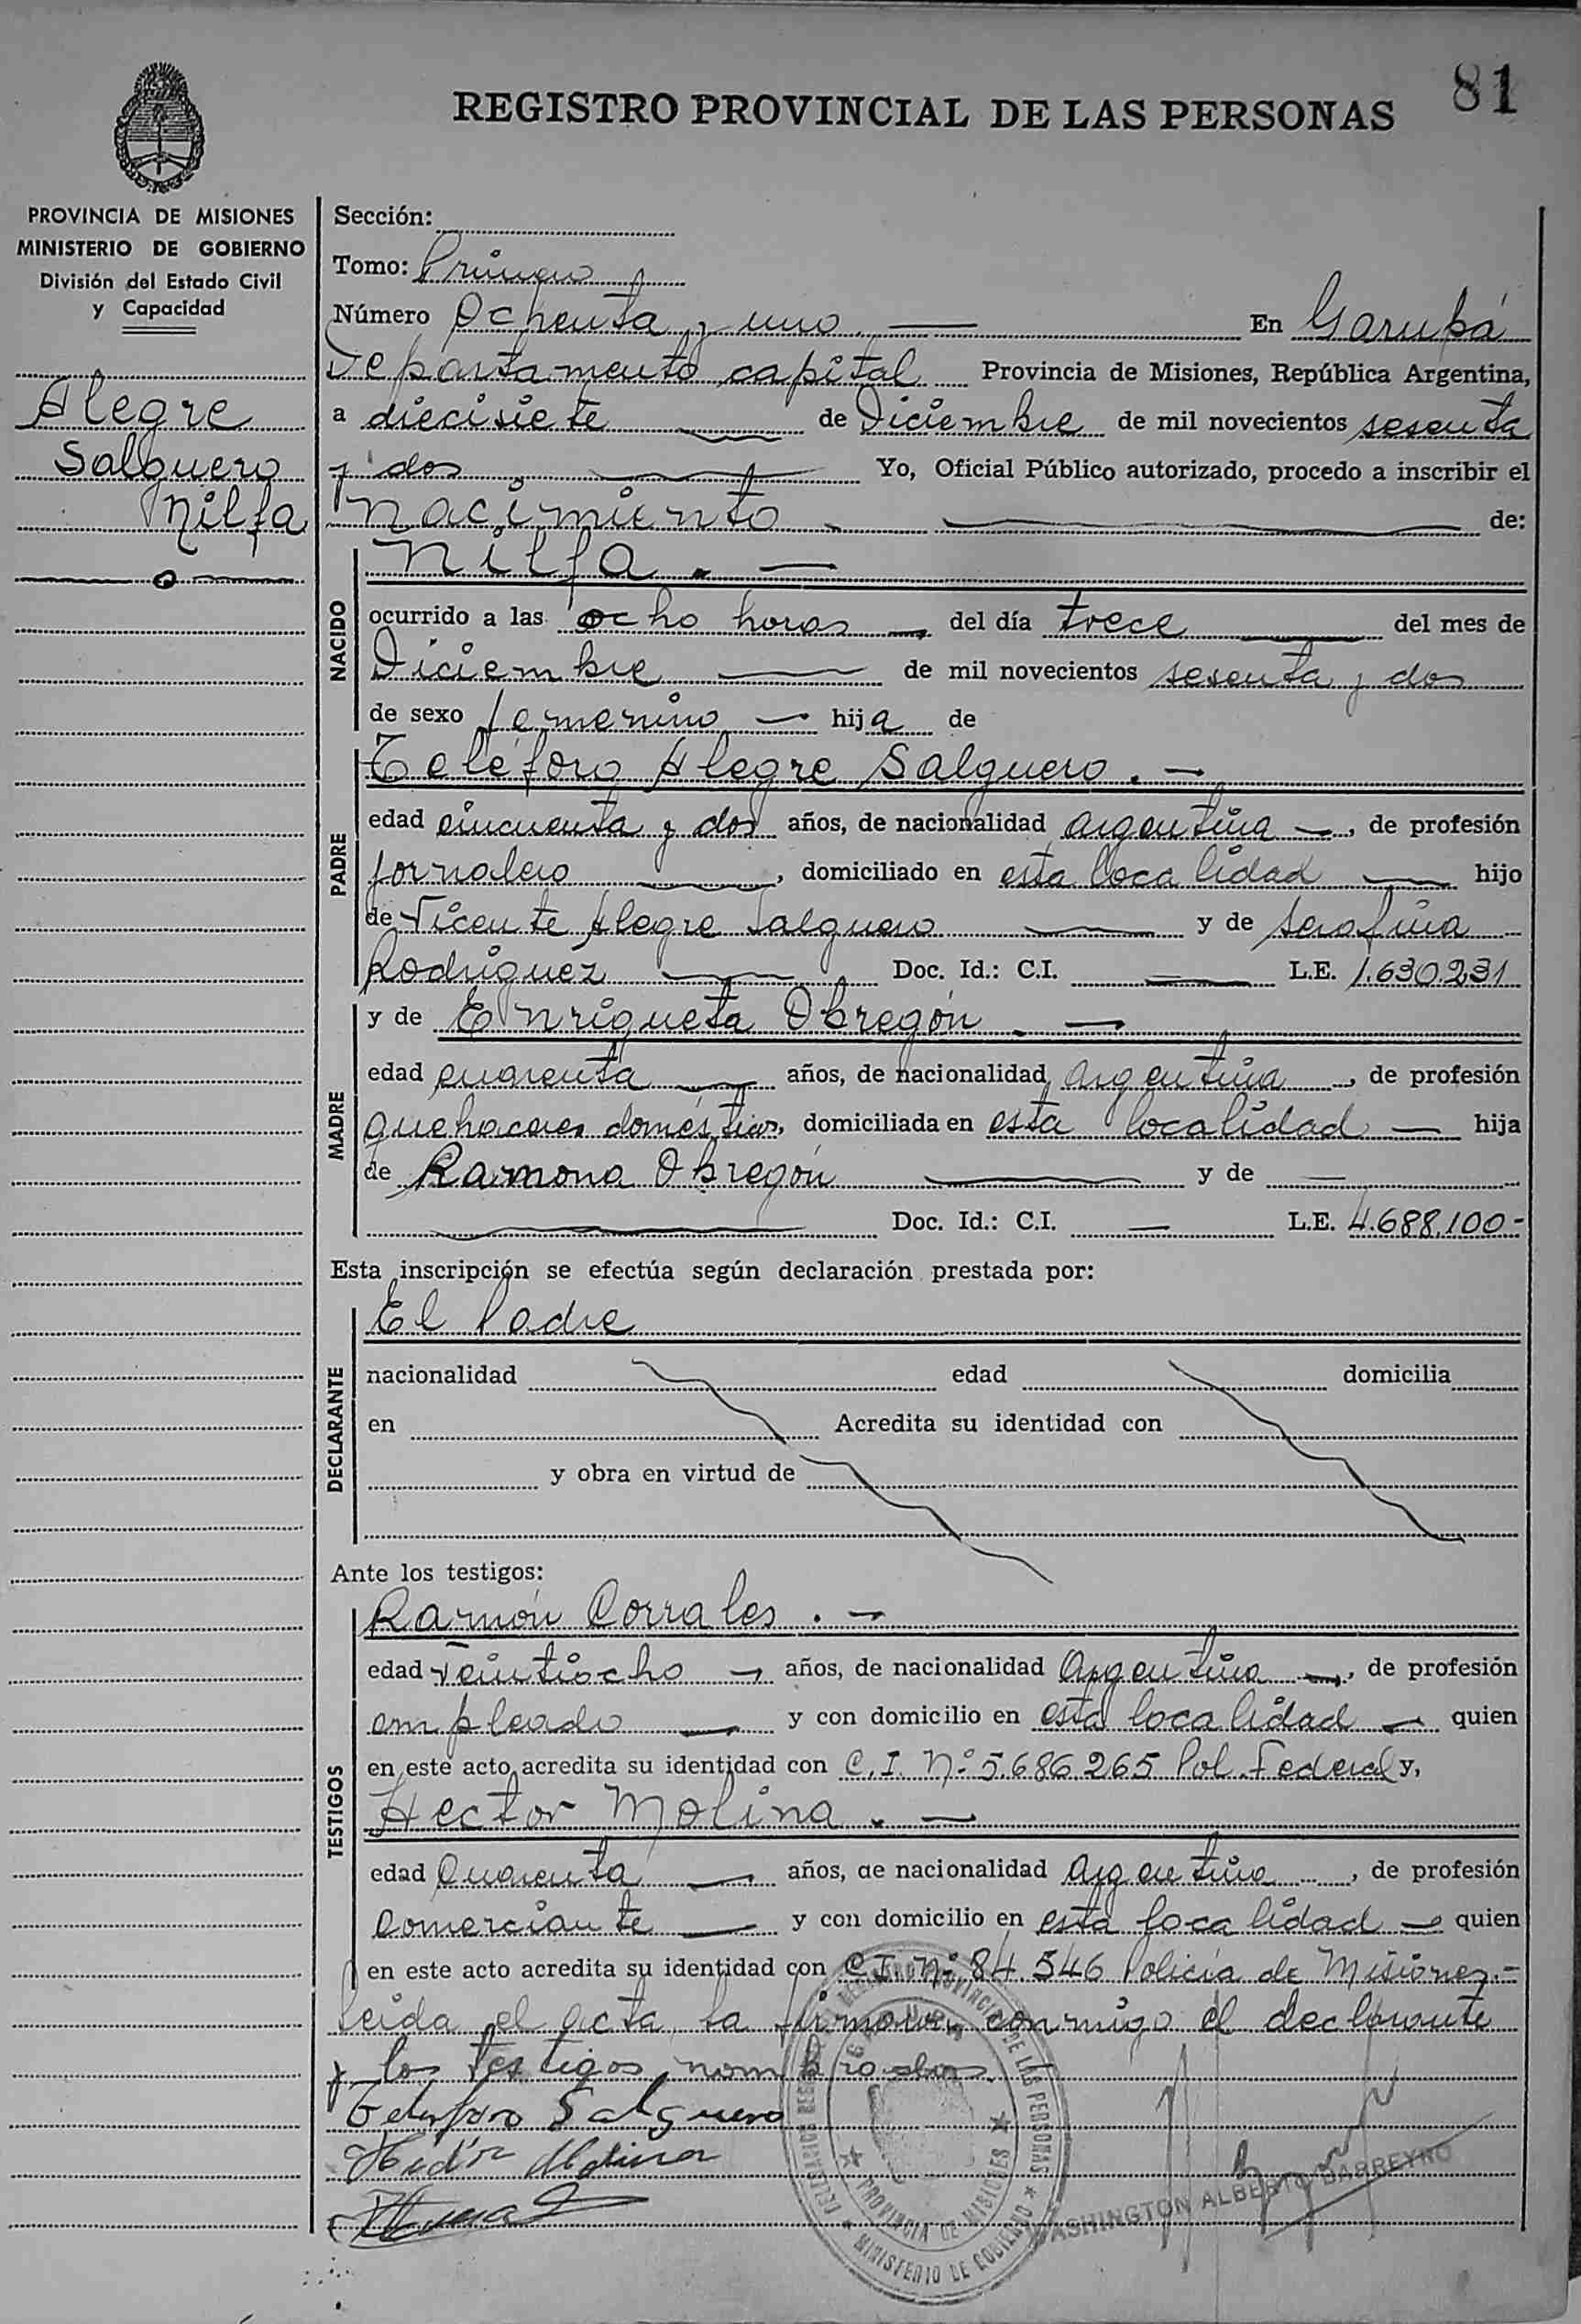 81
REGISTRO PROVINCIAL DE LAS PERSONAS
PROVINCIA DE MISIONES
MINISTERIO DE GOBIERNO
División del Estado Civil
y Capacidad
Alegre
Salguero
Nilfa
Sección:
Tomo: Primero
Número Ochenta y uno. — En Garupá
Departamento capital Provincia de Misiones, República Argentina,
a diecisiete de Diciembre de mil novecientos sesenta
y dos Yo, Oficial Público autorizado, procedo a inscribir el
nacimiento de:
NACIDO
Nilfa. —
ocurrido a las ocho horas — del día trece del mes de
Diciembre — de mil novecientos sesenta y dos
de sexo femenino — hija de
PADRE
Teléforo Alegre Salguero. —
edad cincuenta y dos años, de nacionalidad argentina —, de profesión
jornalero, domiciliado en esta localidad — hijo
de Vicente Alegre Salguero — y de Serafina
Rodríguez — Doc. Id.: C.I. — L.E. 1.630.231
MADRE
y de Enriqueta Obregón. —
edad cuarenta — años, de nacionalidad argentina, de profesión
quehaceres domésticos, domiciliada en esta localidad — hija
de Ramona Obregón — y de —
Doc. Id.: C.I. — L.E. 4.688.100-
Esta inscripción se efectúa según declaración prestada por:
DECLARANTE
El Padre
nacionalidad edad domicilia
en Acredita su identidad con
y obra en virtud de
Ante los testigos:
TESTIGOS
Ramón Corrales. —
edad veintiocho — años, de nacionalidad argentina —, de profesión
empleado — y con domicilio en esta localidad — quien
en este acto acredita su identidad con C.I. Nº 5.686.265 Pol. Federal y,
Hector Molina. —
edad cuarenta — años, de nacionalidad argentina, de profesión
comerciante — y con domicilio en esta localidad — quien
en este acto acredita su identidad con C.I. Nº 84.546 Policía de Misiones.-
Leída el acta, la firman conmigo el declarante
y los testigos nombrados.
Telesforo Salguero
Hector Molina
PROVINCIA DE MISIONES
MINISTERIO DE GOBIERNO
WASHINGTON ALBERTO BARREYRO